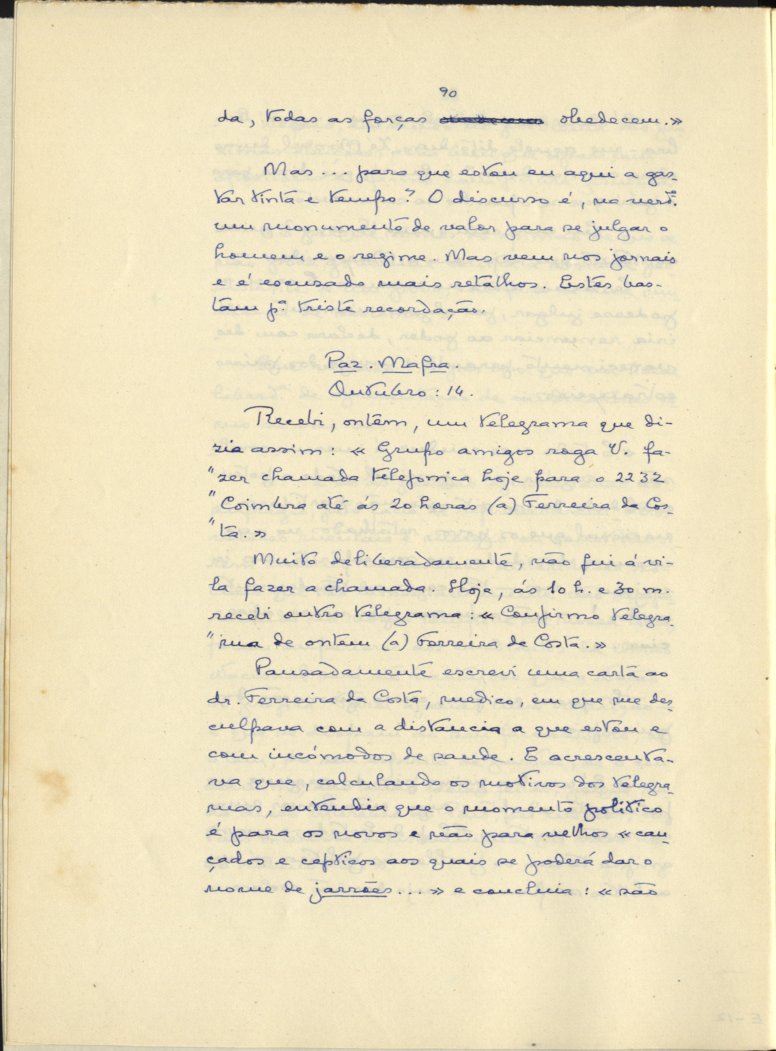 90
da, todas as forças obedecem.»
Mas... para que estou eu aqui a gas-
tar tinta e tempo? O discurso é, na verd.e
um monumento de valor para se julgar o
homem e o regime. Mas vem nos jornais
e é escusado mais retalhos. Estes bas-
tam p.a triste recordação.
Paz. Mafra.
Outubro: 14.
Recebi, ontem, um telegrama que di-
zia assim: « Grupo amigos roga V. fa-
"zer chamada telefonica hoje para o 2232
"Coimbra até ás 20 horas (a) Ferreira da Cos-
"ta.»
Muito deliberadamente, não fui á vi-
la fazer a chamada. Hoje, ás 10 h. e 30 m.
recebi outro telegrama: « Confirmo telegra-
"ma de ontem (a) Ferreira da Costa.»
Pausadamente escrevi uma carta ao
dr. Ferreira da Costa, medico, em que me des-
culpava com a distancia a que estou e
com incómodos de saude. E acrescenta-
va que, calculando os motivos dos telegra-
mas, entendia que o momento politico
é para os novos e não para velhos «can-
çados e cepticos aos quais se poderá dar o
nome de jarrões...» e concluia: « são